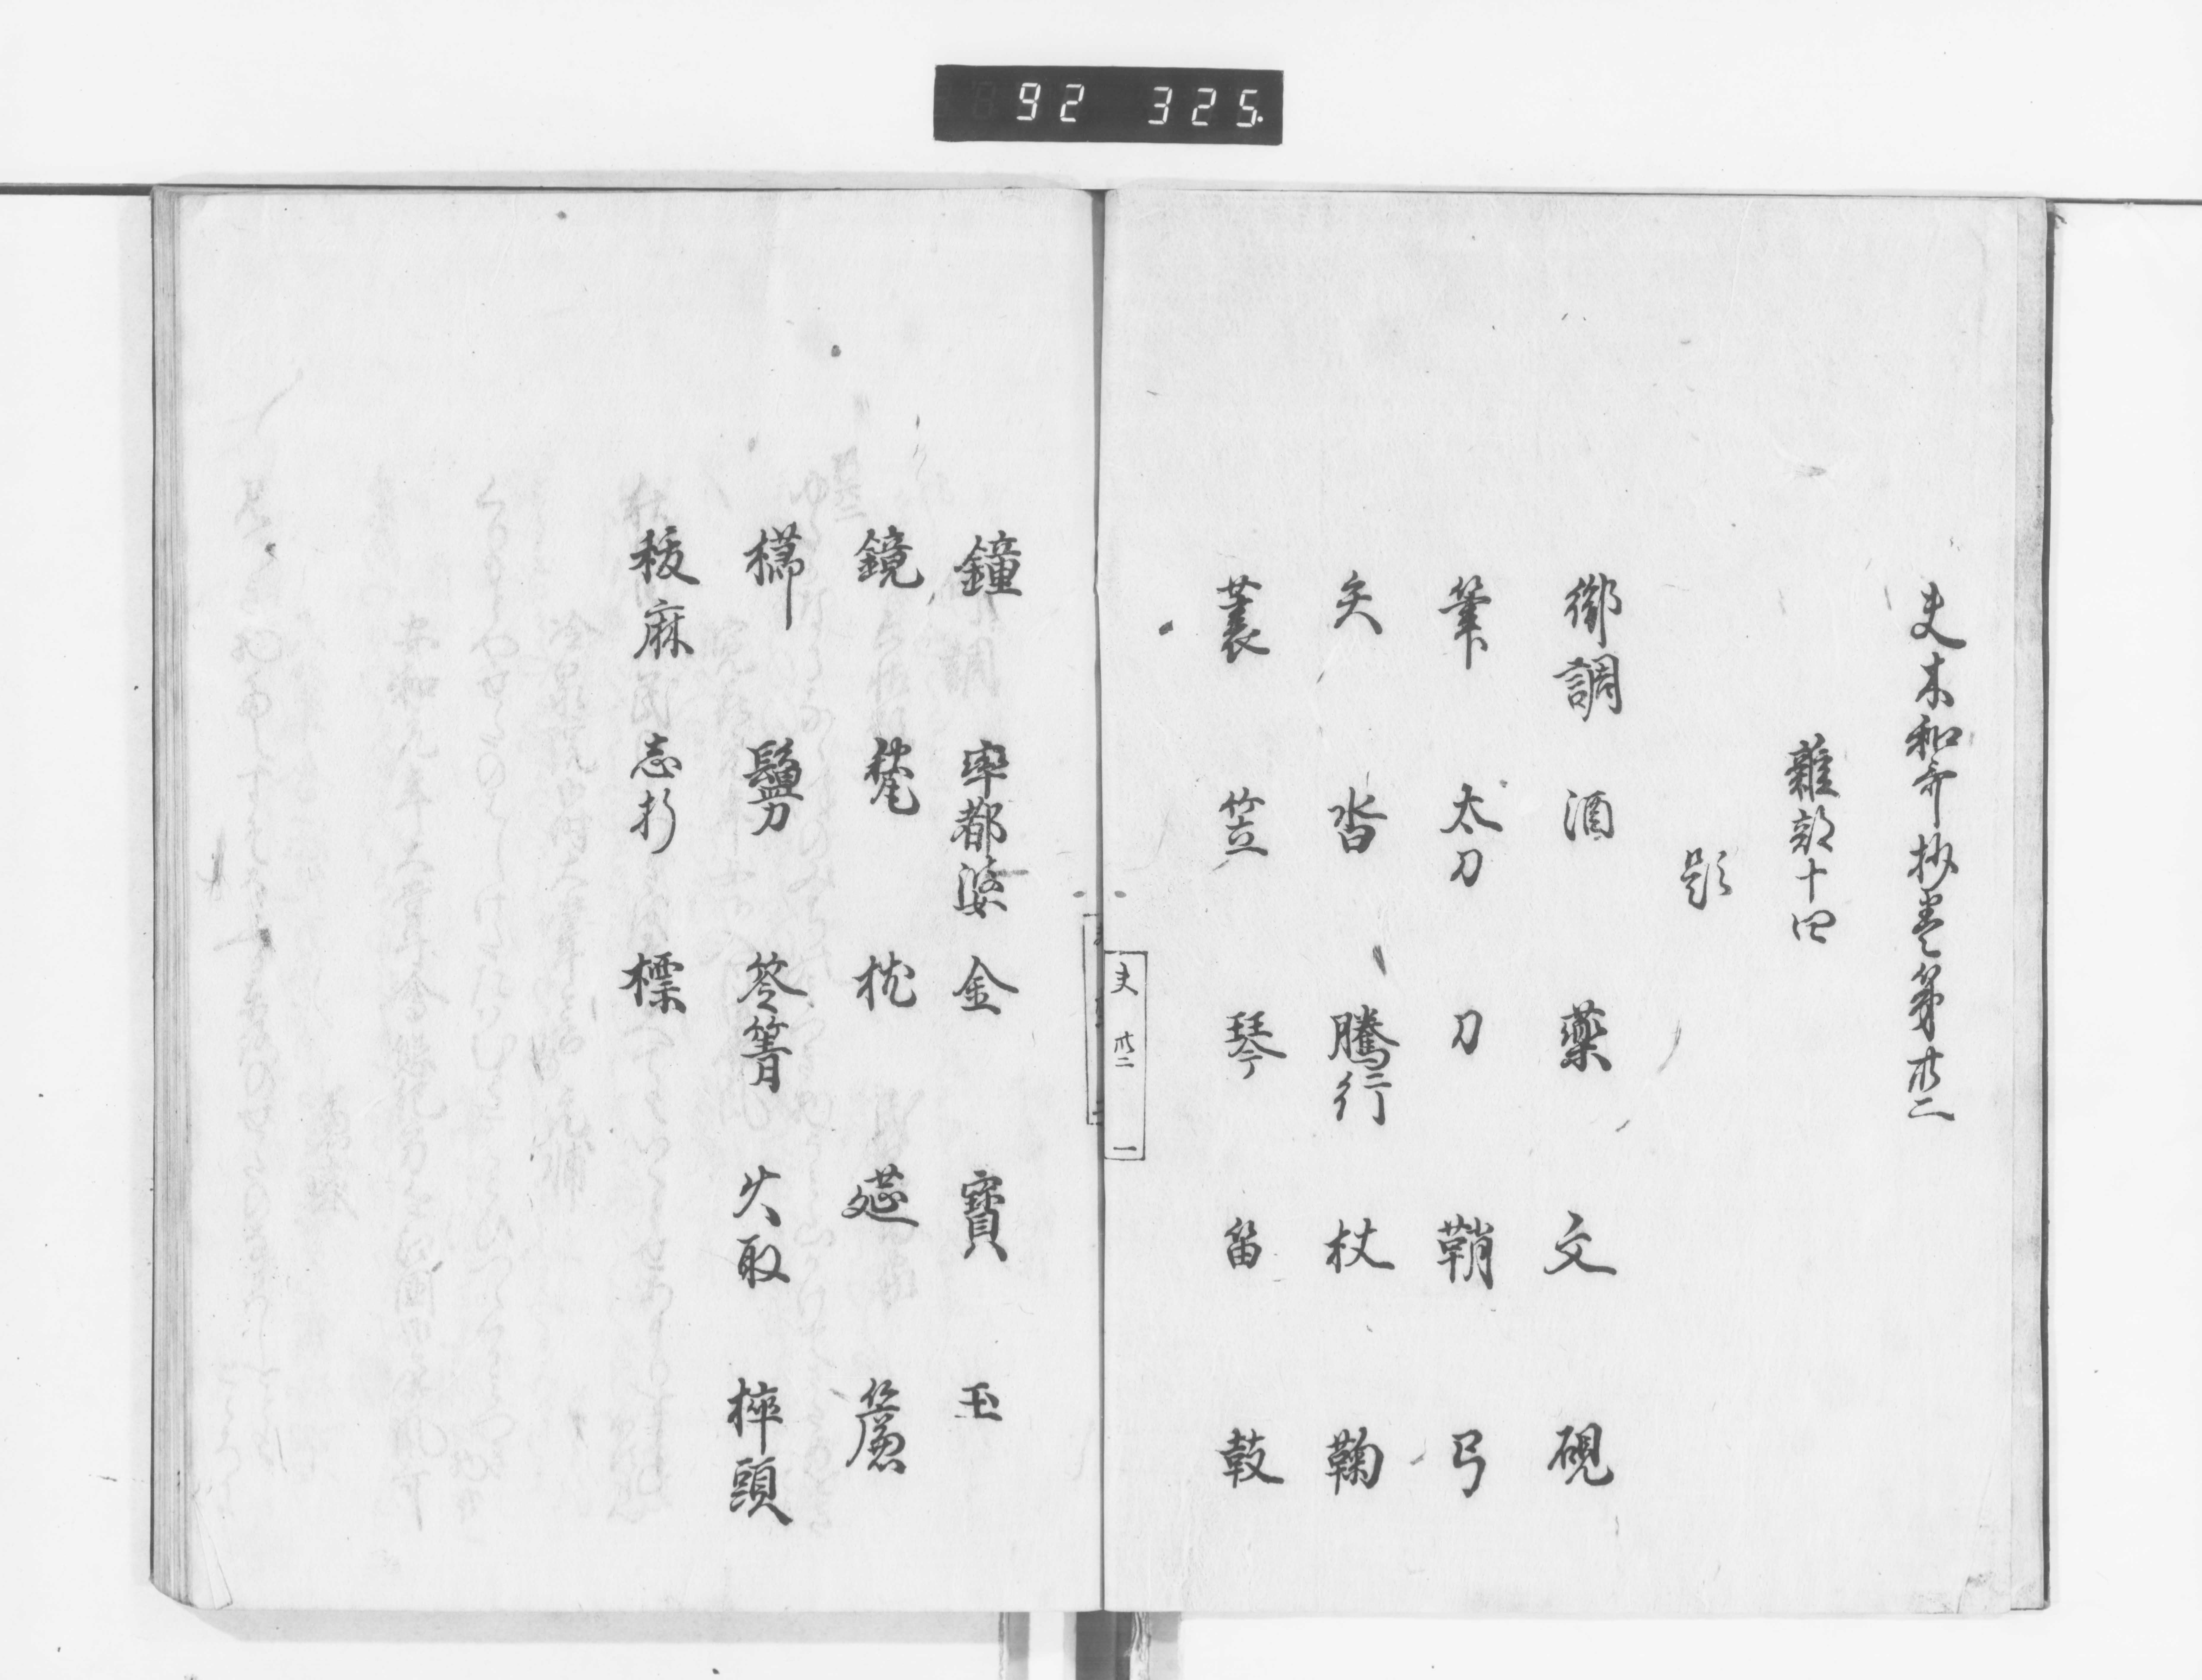 92 325.
夫木和哥抄巻第卅二
雜部十四
題
御調 酒 藥 文 硯
筆 太刀 刀 鞘 弓
矢 沓 騰行 杖 鞠
蓑 笠 琴 笛 鼓
夫 卅二 一
鐘 率都婆 金 寶 玉
鏡 枕 莚 簾
鬘 笭箐 火取 椊頭
秡麻 志折 標